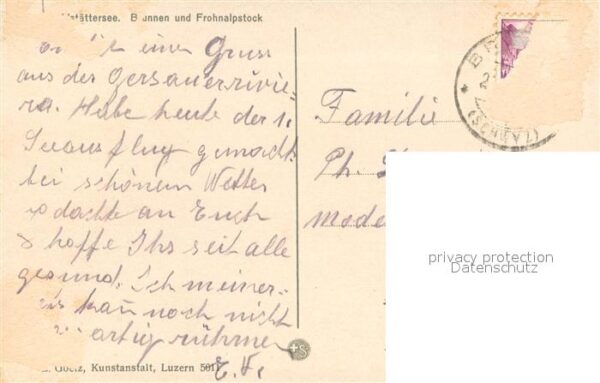 stättersee. Brunnen und Frohnalpstock
einen Gruss
aus der Gersauerrivie-
ra. Habe heute der 1.
Seeausflug gemacht
bei schönem Wetter
dachte an Euch
hoffe Ihr seit alle
gesund. Ich meiner-
kan noch nicht
artig rühmen
E. F.
Goetz, Kunstanstalt, Luzern 5011
(SCHWYZ)
Familie
Ph.
Mode
privacy protection
Datenschutz